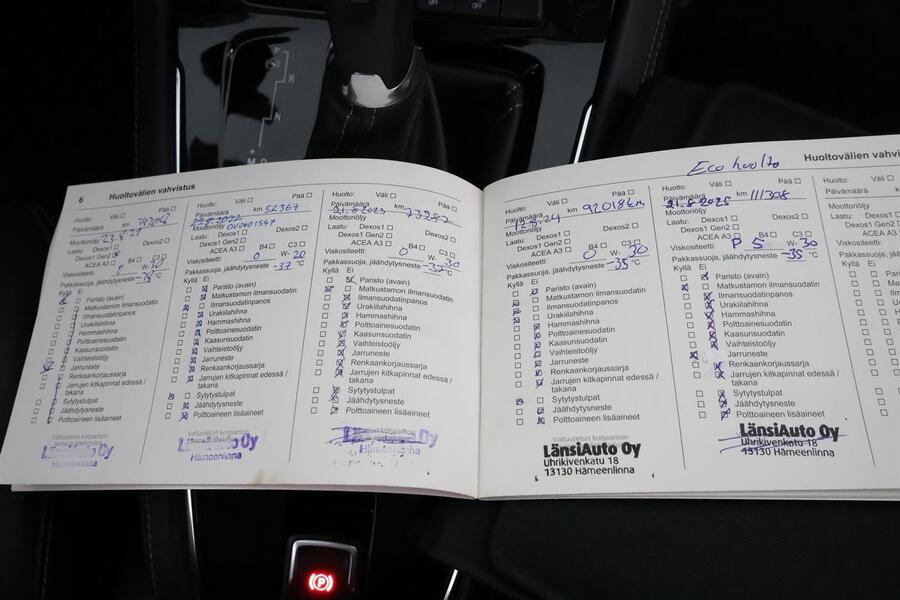 OFF
OFF
P
R
N
M
6 Huoltovälien vahvistus
Huolto: Väli Pää
Päivämäärä km
Moottoriöljy 23.8.21
Laatu: Dexos1 Dexos2
Dexos1 Gen2
ACEA A3 B4 C3
Viskositeetti: W-
Pakkassuoja, jäähdytysneste °C
Kyllä Ei
Paristo (avain)
Matkustamon ilmansuodatin
Ilmansuodatinpanos
Urakilahihna
Hammashihna
Polttoainesuodatin
Kaasunsuodatin
Vaihteistoöljy
Jarruneste
Renkaankorjaussarja
Jarrujen kitkapinnat edessä /
takana
Sytytystulpat
Jäähdytysneste
Polttoaineen lisäaineet
LänsiAuto Oy
Hämeenlinna
Huolto: Väli Pää
Päivämäärä km 52367
Moottoriöljy
Laatu: Dexos1 Dexos2
Dexos1 Gen2
ACEA A3 B4 C3
Viskositeetti: 0 W-20
Pakkassuoja, jäähdytysneste -37 °C
Kyllä Ei
Paristo (avain)
Matkustamon ilmansuodatin
Ilmansuodatinpanos
Urakilahihna
Hammashihna
Polttoainesuodatin
Kaasunsuodatin
Vaihteistoöljy
Jarruneste
Renkaankorjaussarja
Jarrujen kitkapinnat edessä /
takana
Sytytystulpat
Jäähdytysneste
Polttoaineen lisäaineet
LänsiAuto Oy
Hämeenlinna
Huolto: Väli Pää
Päivämäärä 21.8.2023 km 73282
Moottoriöljy
Laatu: Dexos1 Dexos2
Dexos1 Gen2
ACEA A3 B4 C3
Viskositeetti: 0 W-30
Pakkassuoja, jäähdytysneste -37 °C
Kyllä Ei
Paristo (avain)
Matkustamon ilmansuodatin
Ilmansuodatinpanos
Urakilahihna
Hammashihna
Polttoainesuodatin
Kaasunsuodatin
Vaihteistoöljy
Jarruneste
Renkaankorjaussarja
Jarrujen kitkapinnat edessä /
takana
Sytytystulpat
Jäähdytysneste
Polttoaineen lisäaineet
LänsiAuto Oy
Hämeenlinna
Huolto: Väli Pää
Päivämäärä 12.8.24 km 92018km
Moottoriöljy
Laatu: Dexos1 Dexos2
Dexos1 Gen2
ACEA A3 B4 C3
Viskositeetti: 0 W-30
Pakkassuoja, jäähdytysneste -35 °C
Kyllä Ei
Paristo (avain)
Matkustamon ilmansuodatin
Ilmansuodatinpanos
Urakilahihna
Hammashihna
Polttoainesuodatin
Kaasunsuodatin
Vaihteistoöljy
Jarruneste
Renkaankorjaussarja
Jarrujen kitkapinnat edessä /
takana
Sytytystulpat
Jäähdytysneste
Polttoaineen lisäaineet
Valtuutetun korjaamon
LänsiAuto Oy
Uhrikivenkatu 18
13130 Hämeenlinna
Eco huolto
Huoltovälien vahvi
Huolto: Väli Pää
Päivämäärä 21.8.2025 km 111308
Moottoriöljy
Laatu: Dexos1 Dexos2
Dexos1 Gen2
ACEA A3 B4 C3
Viskositeetti: P 5 W-30
Pakkassuoja, jäähdytysneste -35 °C
Kyllä Ei
Paristo (avain)
Matkustamon ilmansuodatin
Ilmansuodatinpanos
Urakilahihna
Hammashihna
Polttoainesuodatin
Kaasunsuodatin
Vaihteistoöljy
Jarruneste
Renkaankorjaussarja
Jarrujen kitkapinnat edessä /
takana
Sytytystulpat
Jäähdytysneste
Polttoaineen lisäaineet
LänsiAuto Oy
Uhrikivenkatu 18
13130 Hämeenlinna
Huolto:
Päivämäärä
Moottoriöljy
Laatu:
Viskositeetti:
Pakkassuoja, jä
Kyllä Ei
P